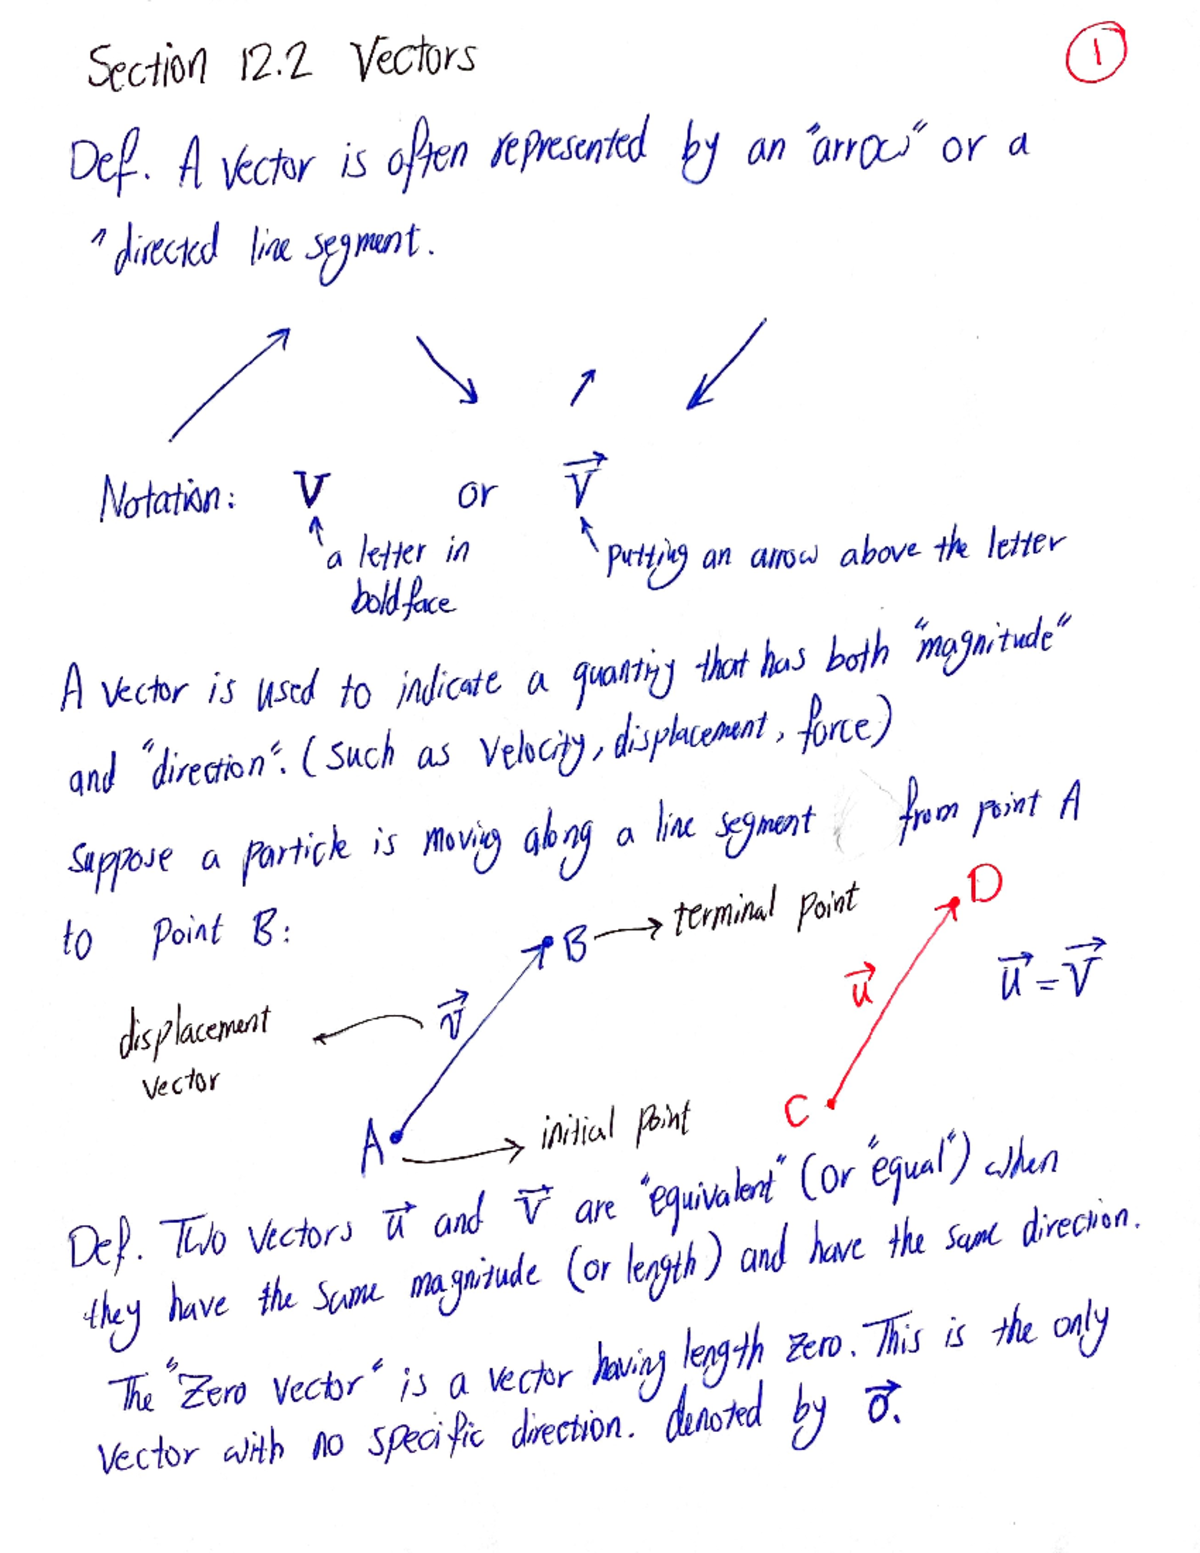 Section 12.2 Vectors
1
Def. A vector is often represented by an "arrow" or a
"directed line segment.
Notation: V or V⃗
a letter in
boldface
putting an arrow above the letter
A vector is used to indicate a quantity that has both "magnitude"
and "direction". (such as velocity, displacement, force)
suppose a particle is moving along a line segment from point A
to point B:
B → terminal point
D
v⃗
u⃗
u⃗ = v⃗
displacement
vector
A → initial point
C
Def. Two vectors u⃗ and v⃗ are "equivalent" (or "equal") when
they have the same magnitude (or length) and have the same direction.
The "Zero vector" is a vector having length zero. This is the only
vector with no specific direction. denoted by o⃗.